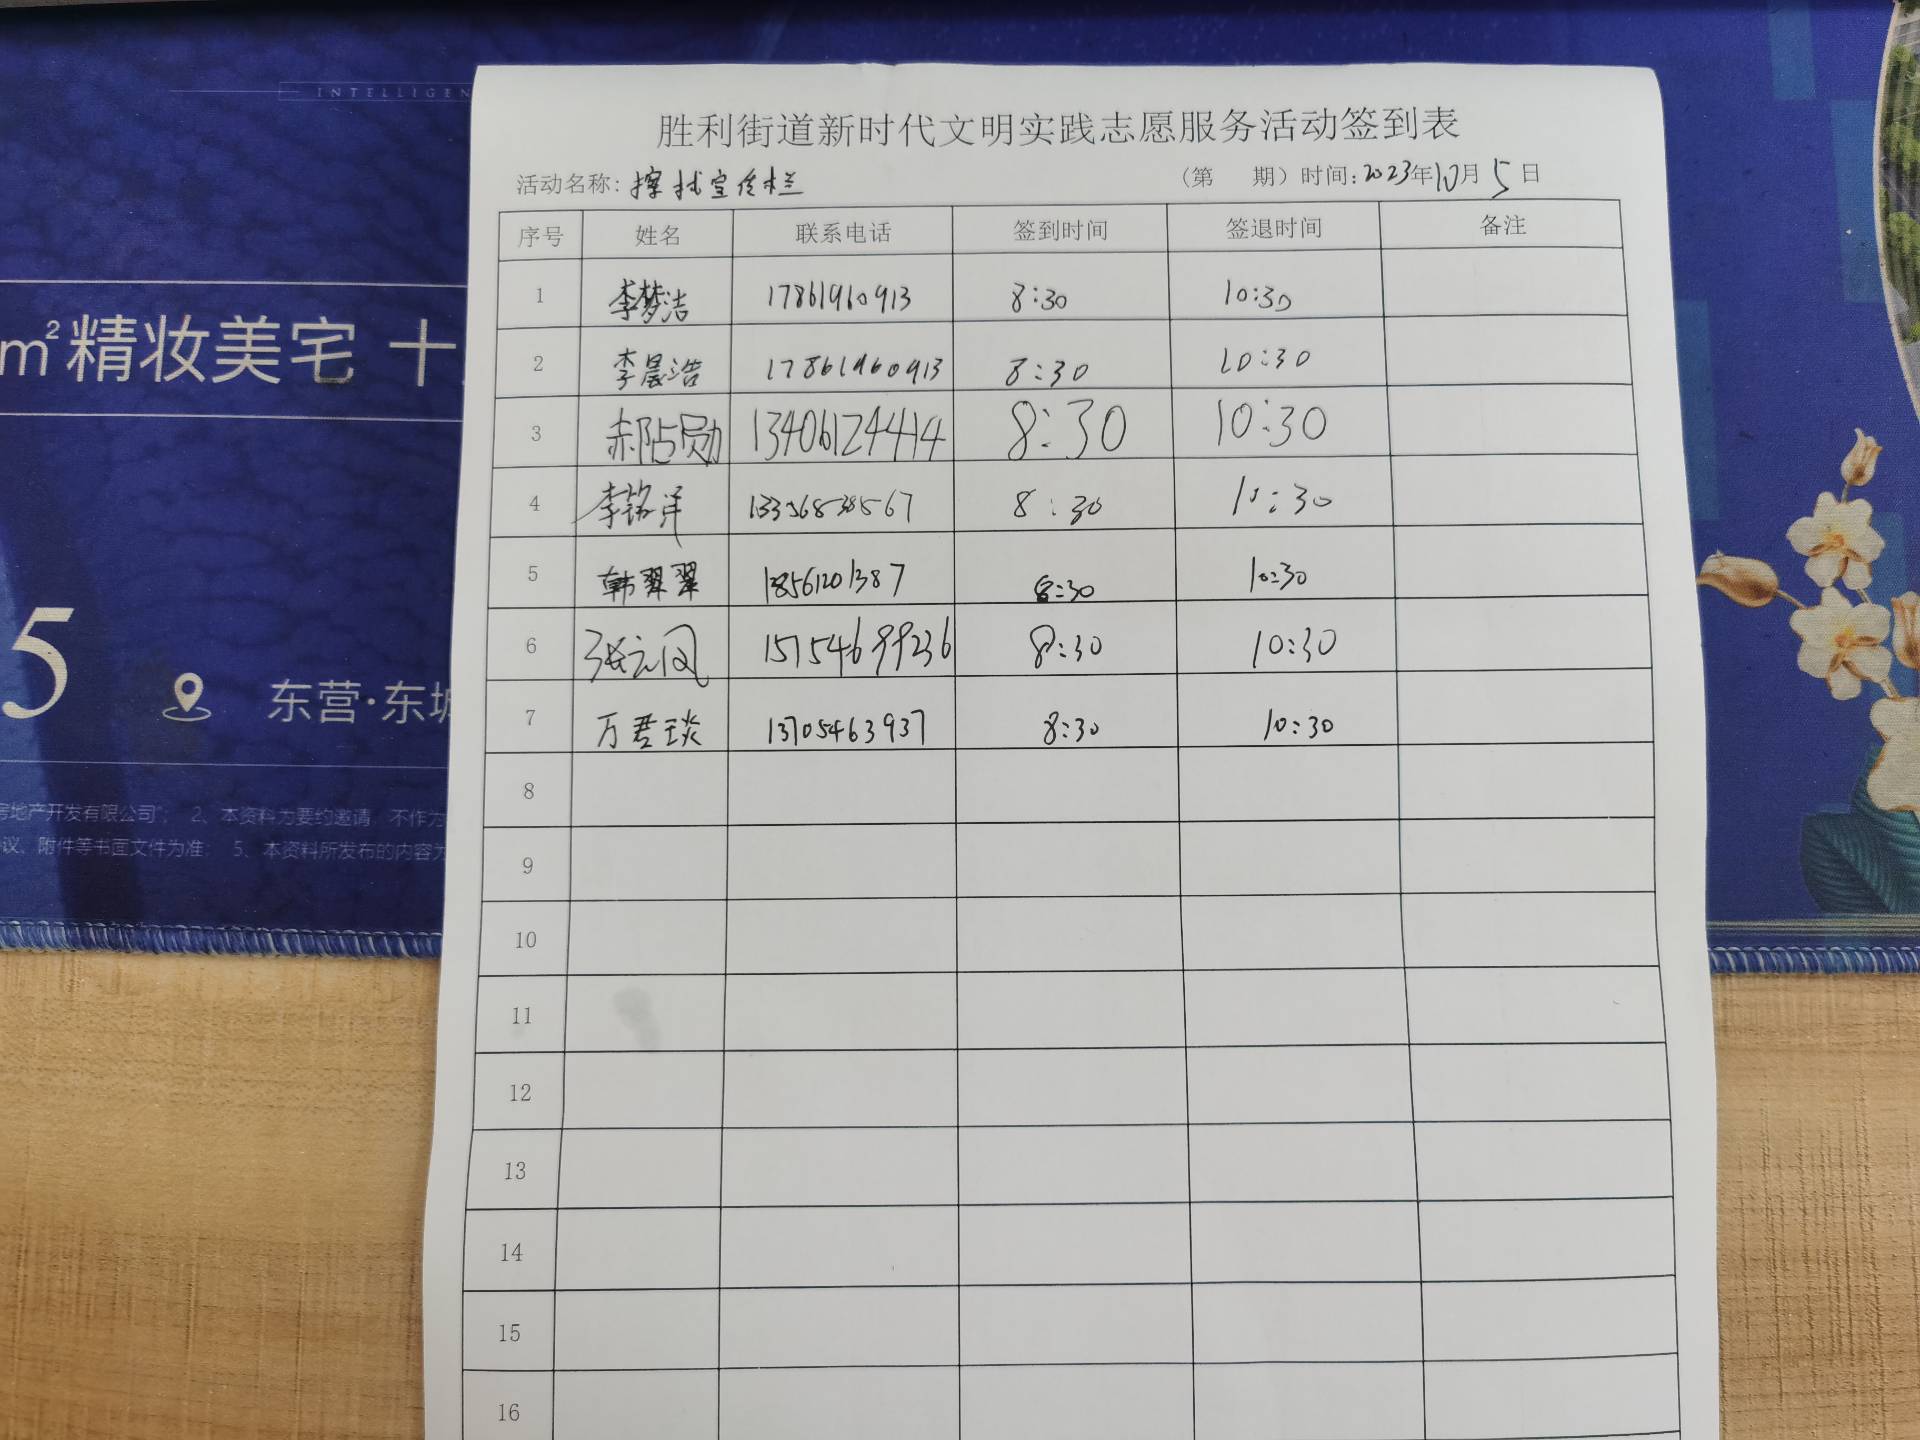 INTELLIGEN
胜利街道新时代文明实践志愿服务活动签到表
活动名称: 擦拭宣传栏 (第 期) 时间: 2023年10月5日
序号 姓名 联系电话 签到时间 签退时间 备注
1 李梦洁 17861960913 8:30 10:30
2 李晨浩 17861960913 8:30 10:30
3 13406124414 8:30 10:30
4 李铭洋 8:30 10:30
5 韩翠翠 8:30 10:30
6 张元凤 15754699236 8:30 10:30
7 万君琰 13705463937 8:30 10:30
8
9
10
11
12
13
14
15
16
m²精妆美宅 十
5
东营·东城
房地产开发有限公司"; 2、本资料为要约邀请, 不作为
议、附件等书面文件为准; 5、本资料所发布的内容为